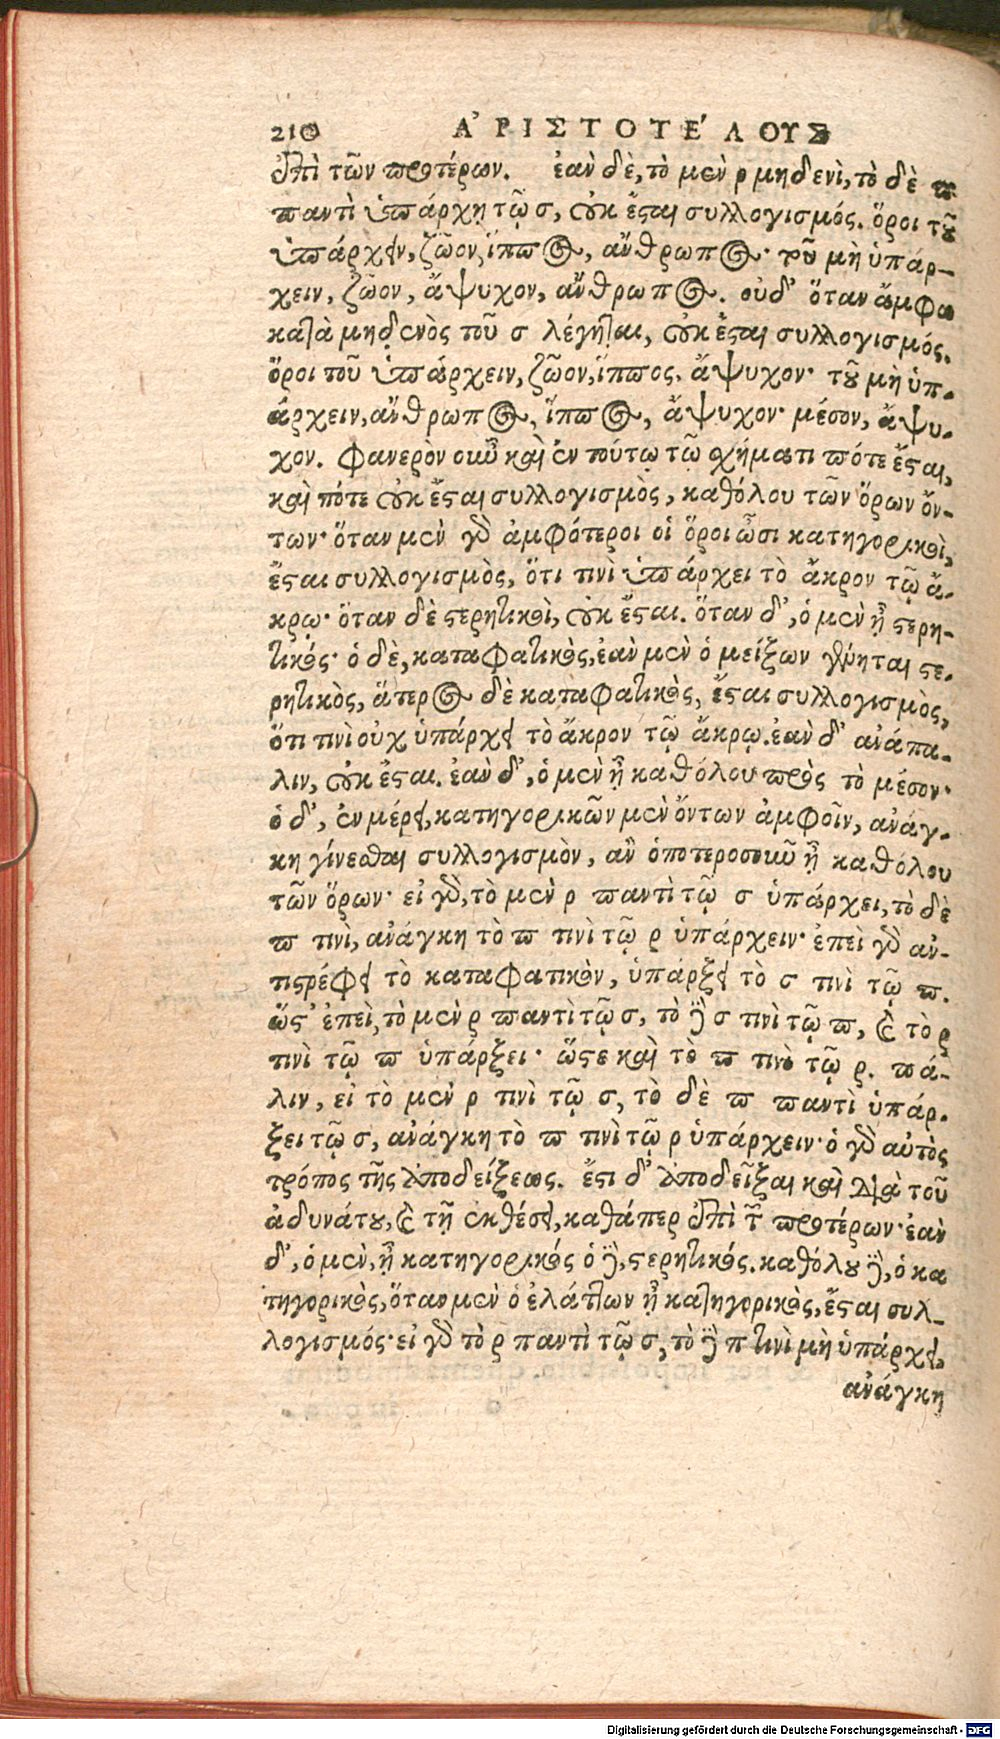 210 ἈΡΙΣΤΟΤΈΛΟΥΣ
ἐπὶ τῶν προτέρων. ἐὰν δὲ, τὸ μὲν ρ μηδενὶ, τὸ δὲ π
παντὶ ὑπάρχῃ τῷ σ, οὐκ ἔσται συλλογισμός. ὅροι τοῦ
ὑπάρχειν, ζῶον, ἵππος, ἄνθρωπος· τοῦ μὴ ὑπάρ-
χειν, ζῶον, ἄψυχον, ἄνθρωπος. οὐδ' ὅταν ἄμφω
κατὰ μηδενὸς τοῦ σ λέγηται, οὐκ ἔσται συλλογισμός.
ὅροι τοῦ ὑπάρχειν, ζῶον, ἵππος, ἄψυχον· τοῦ μὴ ὑπ-
άρχειν, ἄνθρωπος, ἵππος, ἄψυχον· μέσον, ἄψυ-
χον. Φανερὸν οὖν καὶ ἐν τούτῳ τῷ σχήματι πότε ἔσται,
καὶ πότε οὐκ ἔσται συλλογισμὸς, καθόλου τῶν ὅρων ὄν-
των· ὅταν μὲν γὰρ ἀμφότεροι οἱ ὅροι ὦσι κατηγορικοὶ,
ἔσται συλλογισμὸς, ὅτι τινὶ ὑπάρχει τὸ ἄκρον τῷ ἄ-
κρῳ· ὅταν δὲ στερητικοὶ, οὐκ ἔσται. ὅταν δ', ὁ μὲν ᾖ στερη-
τικός· ὁ δὲ, καταφατικὸς, ἐὰν μὲν ὁ μείξων γένηται στε-
ρητικὸς, ἅτερος δὲ καταφατικὸς, ἔσται συλλογισμὸς,
ὅτι τινὶ οὐχ ὑπάρχει τὸ ἄκρον τῷ ἄκρῳ. ἐὰν δ' ἀνάπα-
λιν, οὐκ ἔσται. ἐὰν δ', ὁ μὲν ᾖ καθόλου πρὸς τὸ μέσον·
ὁ δ', ἐν μέρει, κατηγορικῶν μὲν ὄντων ἀμφοῖν, ἀνάγ-
κη γίνεσθαι συλλογισμὸν, ἂν ὁποτεροσοῦν ᾖ καθόλου
τῶν ὅρων· εἰ γὰρ, τὸ μὲν ρ παντὶ τῷ σ ὑπάρχει, τὸ δὲ
π τινὶ, ἀνάγκη τὸ π τινὶ τῷ ρ ὑπάρχειν· ἐπεὶ γὰρ ἀν-
τιστρέφει τὸ καταφατικὸν, ὑπάρξει τὸ σ τινὶ τῷ π.
ὥστ' ἐπεὶ, τὸ μὲν ρ παντὶ τῷ σ, τὸ δὲ σ τινὶ τῷ π, καὶ τὸ ρ
τινὶ τῷ π ὑπάρξει· ὥστε καὶ τὸ π τινὶ τῷ ρ. πά-
λιν, εἰ τὸ μὲν ρ τινὶ τῷ σ, τὸ δὲ π παντὶ ὑπάρ-
ξει τῷ σ, ἀνάγκη τὸ π τινὶ τῷ ρ ὑπάρχειν· ὁ γὰρ αὐτὸς
τρόπος τῆς ἀποδείξεως. ἔστι δ' ἀποδεῖξαι καὶ διὰ τοῦ
ἀδυνάτου, καὶ τῇ ἐκθέσει, καθάπερ ἐπὶ τῶν προτέρων· ἐὰν
δ', ὁ μὲν, ᾖ κατηγορικός ὁ δὲ, στερητικός. καθόλου δὲ, ὁ κα
τηγορικὸς, ὅταν μὲν ὁ ἐλάττων ᾖ κατηγορικὸς, ἔσται συλ-
λογισμός· εἰ γὰρ τὸ ρ παντὶ τῷ σ, τὸ δὲ π τινὶ μὴ ὑπάρχει,
ἀνάγκη
Digitalisierung gefördert durch die Deutsche Forschungsgemeinschaft - DFG